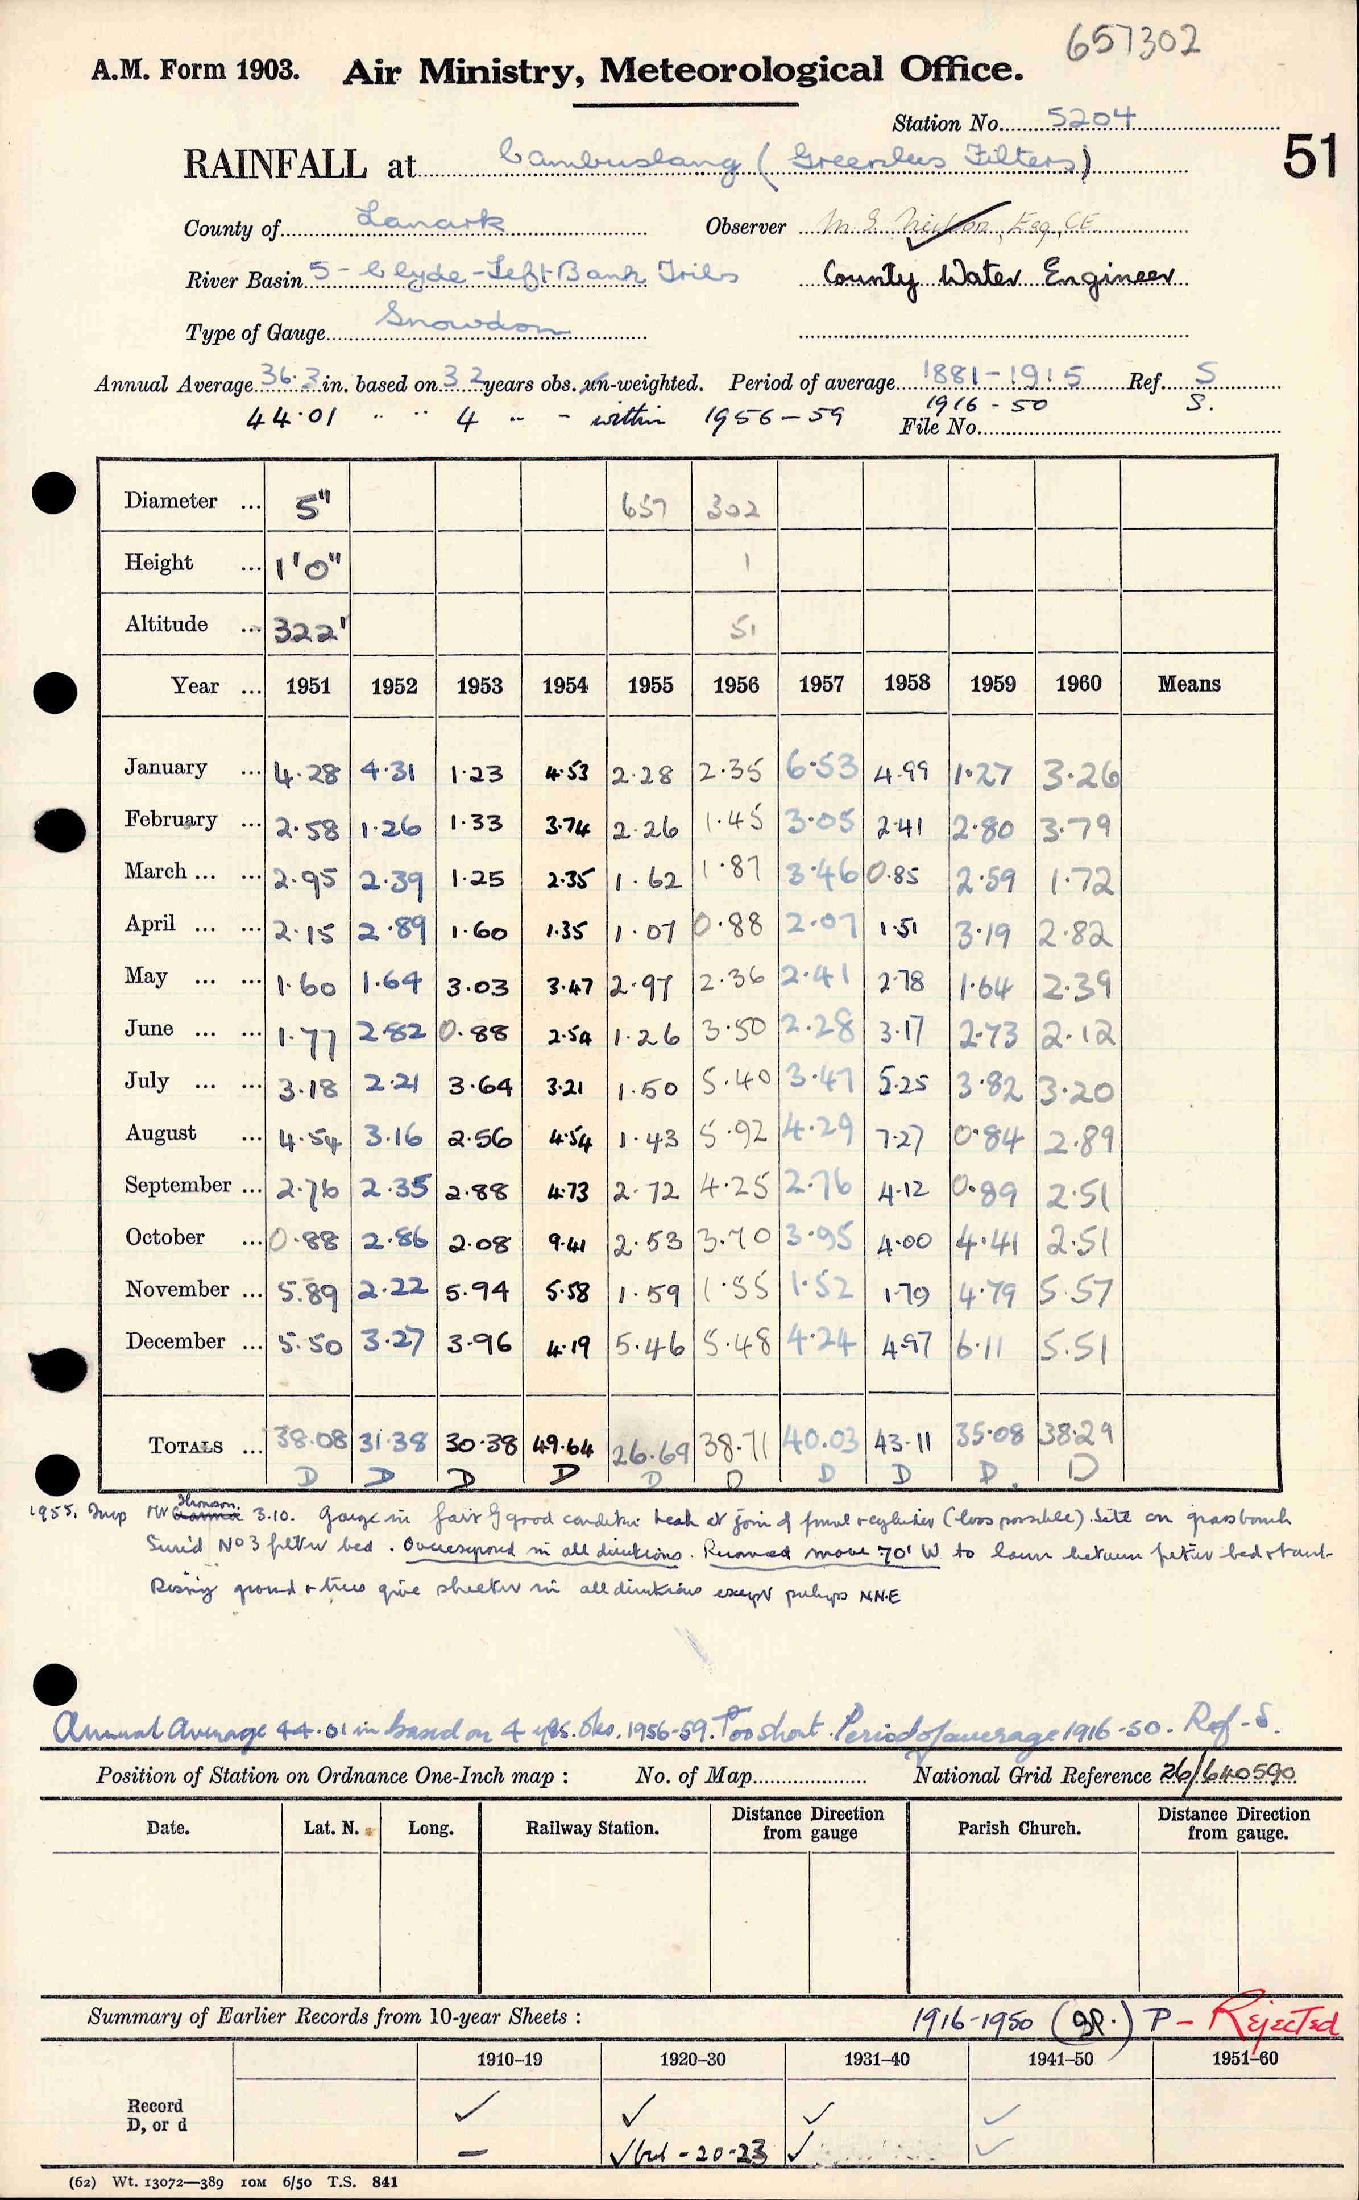 657302
A.M. Form 1903. Air Ministry, Meteorological Office.
Station No. 5204
51
RAINFALL at Cambuslang (Greenlees Filters)
County of Lanark Observer M. S. Neilson, Esq, CE
River Basin 5 - Clyde - Left Bank Tribs County Water Engineer
Type of Gauge Snowdon
Annual Average 36.3 in. based on 32 years obs. un-weighted. Period of average 1881-1915 Ref. S
44.01 " " 4 " - within 1956-59 1916-50 S.
File No.
Diameter ... 5" 657 302
Height ... 1'0" 1
Altitude ... 322' 51
Year ... 1951 1952 1953 1954 1955 1956 1957 1958 1959 1960 Means
January ... 4.28 4.31 1.23 4.53 2.28 2.35 6.53 4.99 1.27 3.26
February ... 2.58 1.26 1.33 3.74 2.26 1.45 3.05 2.41 2.80 3.79
March ... ... 2.95 2.39 1.25 2.35 1.62 1.87 3.46 0.85 2.59 1.72
April ... ... 2.15 2.89 1.60 1.35 1.07 0.88 2.07 1.51 3.19 2.82
May ... ... 1.60 1.64 3.03 3.47 2.97 2.36 2.41 2.78 1.64 2.39
June ... ... 1.77 2.82 0.88 2.54 1.26 3.50 2.28 3.17 2.73 2.12
July ... ... 3.18 2.21 3.64 3.21 1.50 5.40 3.47 5.25 3.82 3.20
August ... 4.54 3.16 2.56 4.54 1.43 5.92 4.29 7.27 0.84 2.89
September ... 2.76 2.35 2.88 4.73 2.72 4.25 2.76 4.12 0.89 2.51
October ... 0.88 2.86 2.08 9.41 2.53 3.70 3.95 4.00 4.41 2.51
November ... 5.89 2.22 5.94 5.58 1.59 1.55 1.52 1.79 4.79 5.57
December ... 5.50 3.27 3.96 4.19 5.46 5.48 4.24 4.97 6.11 5.51
TOTALS ... 38.08 31.38 30.38 49.64 26.69 38.71 40.03 43.11 35.08 38.29
D D D D D D D D D. D
1955. Insp Mr Thomson 3.10. Gauge in fair to good condition leak at join of funnel & cylinder (loss possible). Site on grass bank
Surr'd No 3 filter bed. Overexposed in all directions. Recommend move 70' W to lawn between filter bed & tank
Rising ground & trees give shelter in all directions except perhaps N.N.E
Annual Average 44.01 in based on 4 yrs. obs. 1956-59. Too short. Period of average 1916-50. Ref - S.
Position of Station on Ordnance One-Inch map : No. of Map National Grid Reference 26/640590
Date. Lat. N. Long. Railway Station. Distance Direction from gauge Parish Church. Distance Direction from gauge.
Summary of Earlier Records from 10-year Sheets : 1916-1950 (gp.) P - Rejected
1910–19 1920–30 1931–40 1941–50 1951–60
Record ✓ ✓ ✓ ✓
D, or d
– ✓ but - 20-23 ✓ ✓
(62) Wt. 13072—389 10M 6/50 T.S. 841